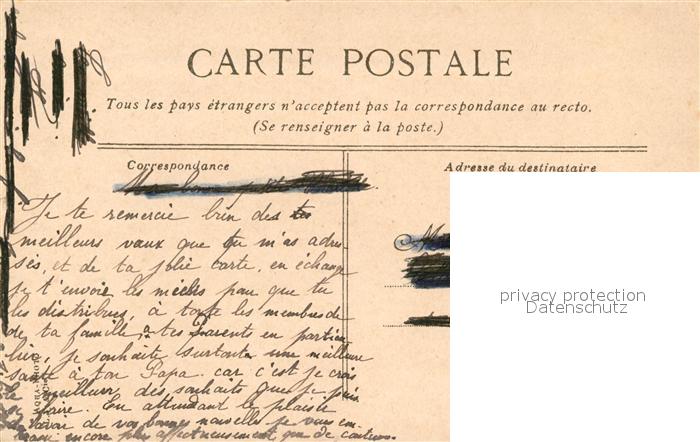 CARTE POSTALE
Tous les pays étrangers n'acceptent pas la correspondance au recto.
(Se renseigner à la poste.)
Correspondance
Adresse du destinataire
Je te remercie bien des
meilleurs vœux que tu m'as adres
sés, et de ta jolie carte, en échange
je t'envoie les miens pour que tu
les distribues, à toute les membres de
de ta famille, a tes Parents en particu
lier, je souhaite surtout une meilleure
santé à ton Papa. car c'est je crois
le meilleur des souhaits que je puis
se faire. En attendant le plaisir
d'avoir de vos bonnes nouvelles je vous em
brasse encore plus affectueusement que de coutume.
privacy protection
Datenschutz